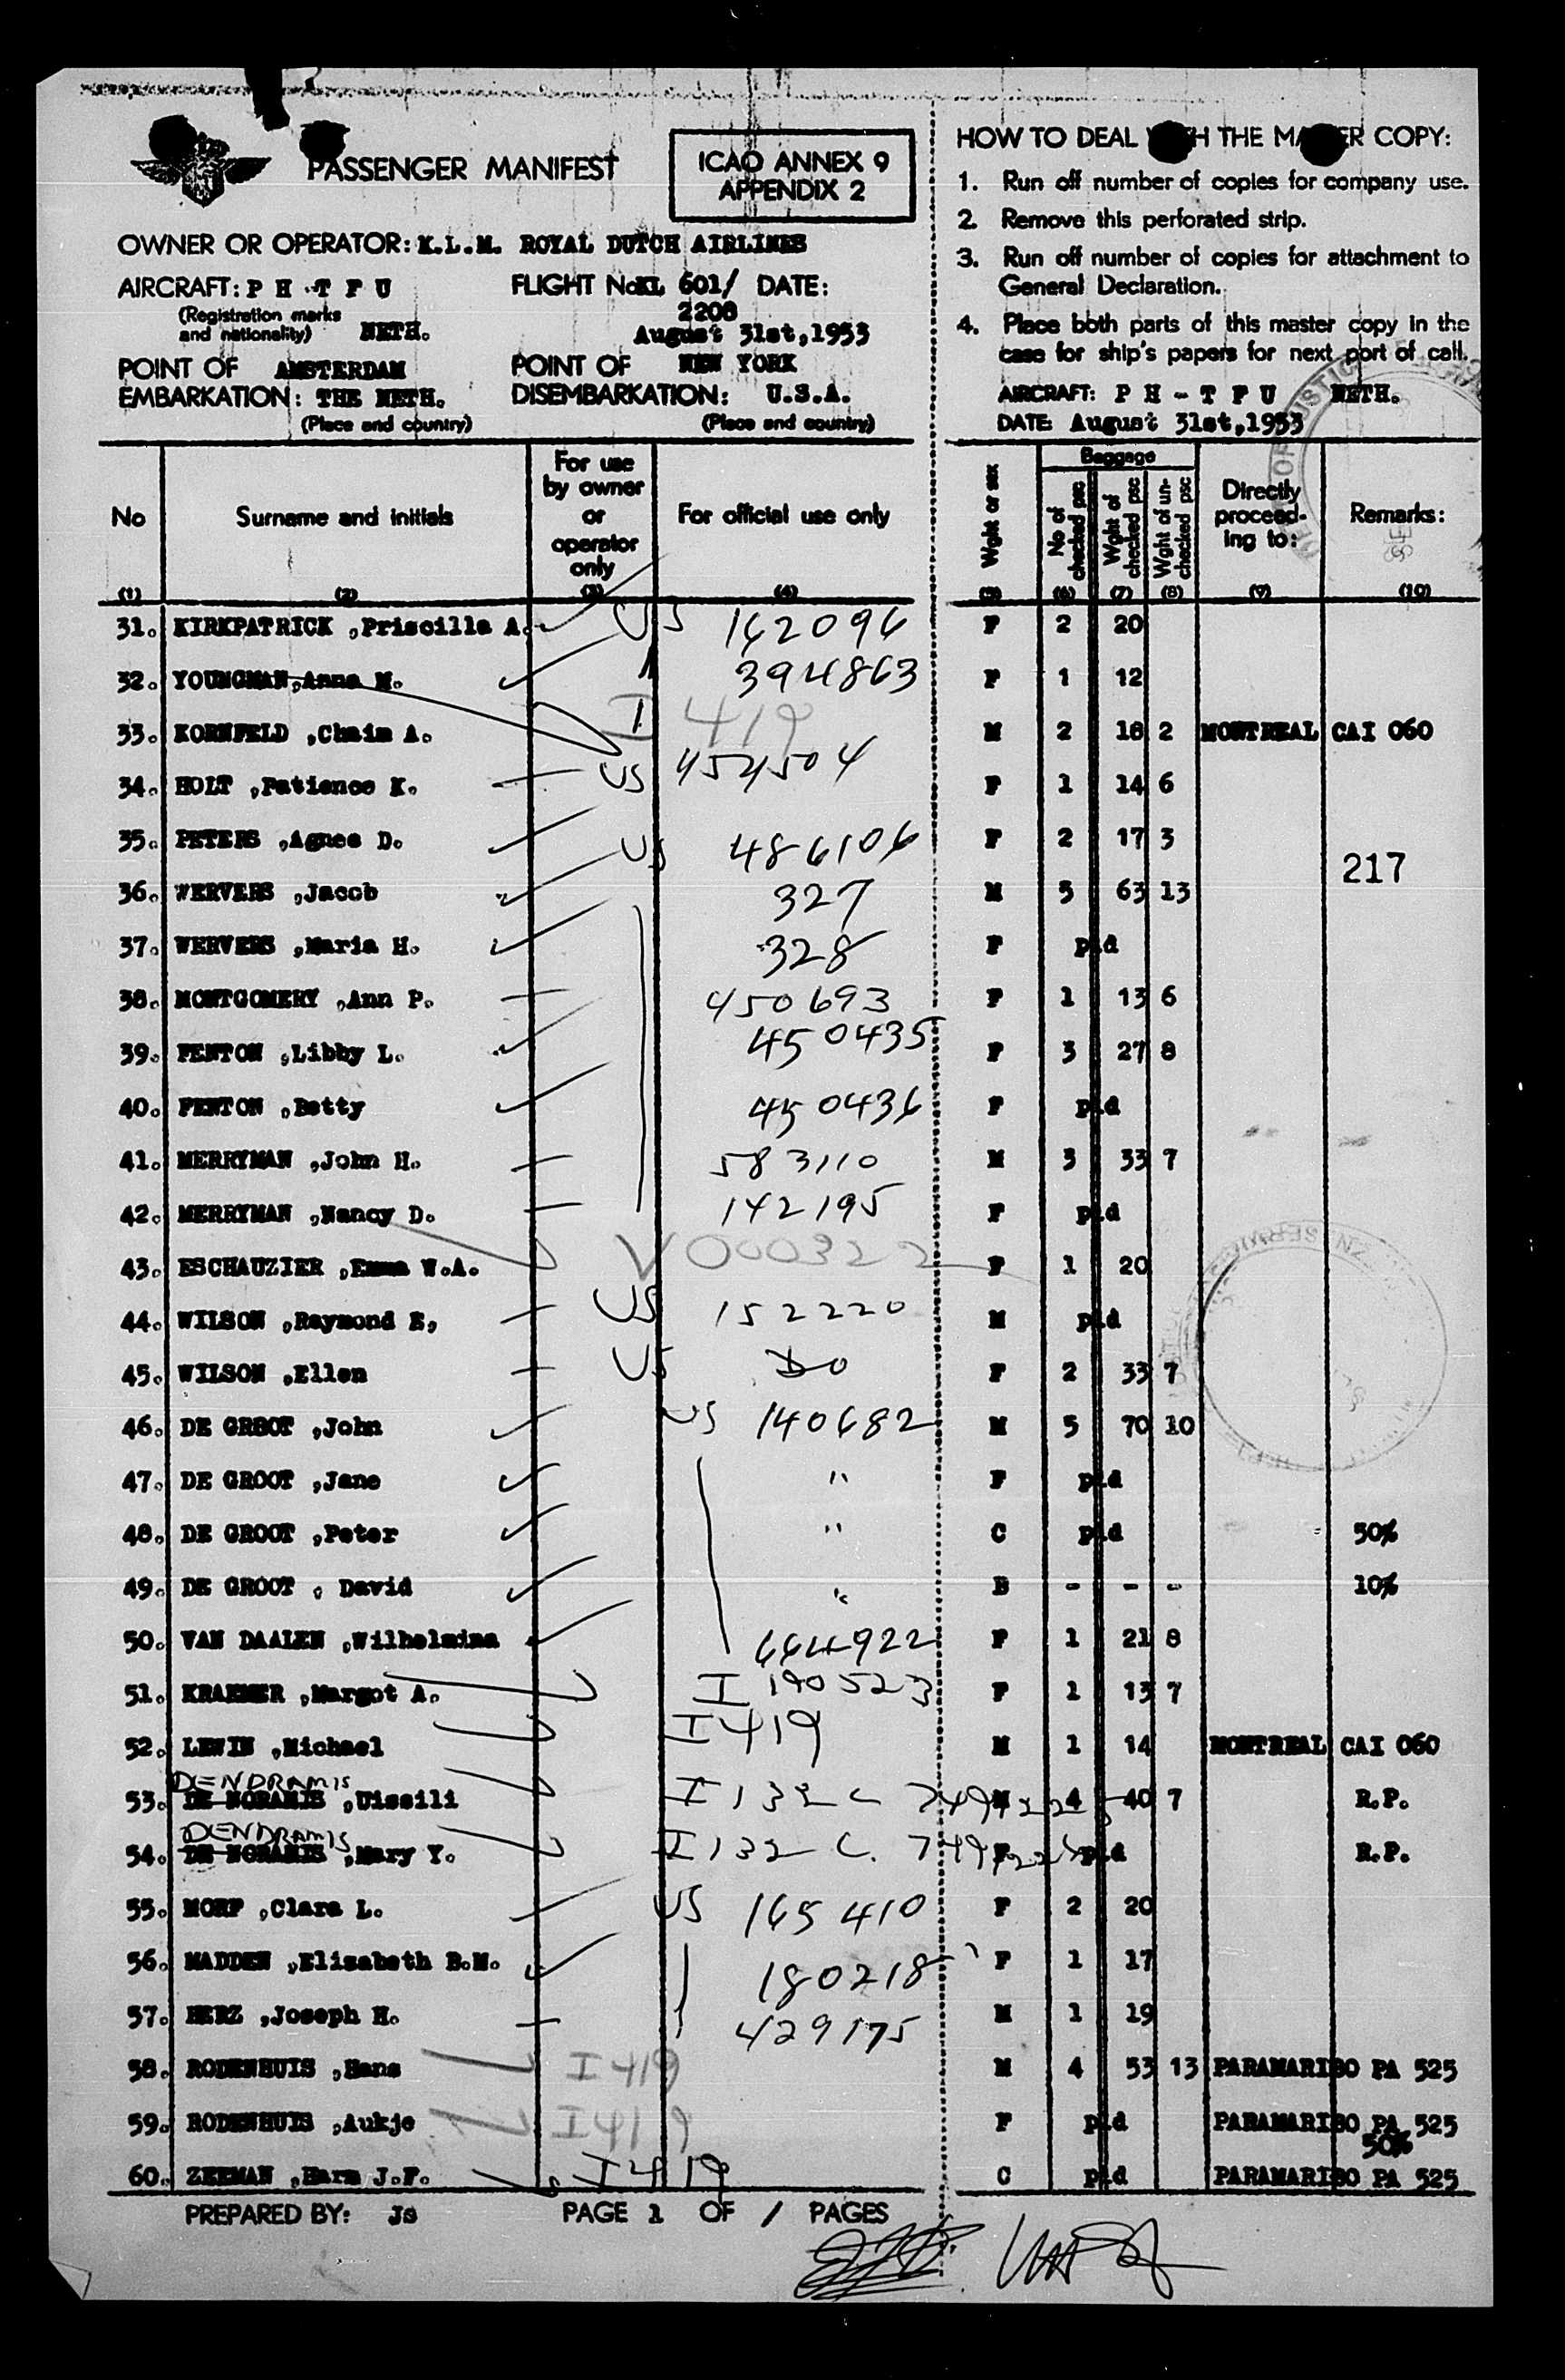 PASSENGER MANIFEST
ICAO ANNEX 9
APPENDIX 2
OWNER OR OPERATOR: K.L.M. ROYAL DUTCH AIRLINES
AIRCRAFT: P H - T P U FLIGHT No KL 601/ DATE:
2208
(Registration marks
and nationality) NETH. August 31st,1953
POINT OF AMSTERDAM POINT OF NEW YORK
EMBARKATION: THE NETH. DISEMBARKATION: U.S.A.
(Place and country) (Place and country)
HOW TO DEAL THE COPY:
1. Run off number of copies for company use.
2. Remove this perforated strip.
3. Run off number of copies for attachment to
General Declaration.
4. Place both parts of this master copy in the
case for ship's papers for next port of call.
AIRCRAFT: P H - T P U NETH.
DATE: August 31st,1953
No Surname and initials For use by owner or operator only For official use only Wght or sex Baggage No of checked psc Wght of checked psc Wght of un-checked psc Directly proceed-ing to: Remarks:
(1) (2) (3) (4) (5) (6) (7) (8) (9) (10)
31. KIRKPATRICK ,Priscilla A. US 162096 F 2 20
32. YOUNGMAN,Anna M. 394863 F 1 12
33. KORNFELD ,Chaim A. I 419 M 2 18 2 MONTREAL CAI 060
34. HOLT ,Patience K. US 454504 F 1 14 6
35. PETERS ,Agnes D. US 486106 F 2 17 3
217
36. WERVERS ,Jacob 327 M 5 63 13
37. WERVERS ,Maria H. 328 F pld
38. MONTGOMERY ,Ann P. 450693 F 1 13 6
39. FENTON ,Libby L. 450435 F 3 27 8
40. FENTON ,Betty 450436 F pld
41. MERRYMAN ,John H. 583110 M 3 33 7
42. MERRYMAN ,Nancy D. 142195 F pld
43. ESCHAUZIER ,Emma W.A. V000322 F 1 20
44. WILSON ,Raymond E, US 152220 M pld
45. WILSON ,Ellen US Do F 2 33 7
46. DE GROOT ,John US 140682 M 5 70 10
47. DE GROOT ,Jane " F pld
48. DE GROOT ,Peter " C pld 50%
49. DE GROOT , David " B - - - 10%
50. VAN DAALEN ,Wilhelmina 664922 F 1 21 8
51. KRAEMER ,Margot A. I 190523 F 1 13 7
52. LEWIN ,Michael I 419 M 1 14 MONTREAL CAI 060
DENDRAMIS
53. DE NORAMIS ,Uissili I 132 C M 4 40 7 R.P.
DENDRAMIS
54. DE NORAMIS ,Mary Y. I 132 C. F pld R.P.
55. MORF ,Clara L. US 165410 F 2 20
56. MADDEN ,Elisabeth B.M. 180218 F 1 17
57. HERZ ,Joseph H. 429175 M 1 19
58. RODENHUIS ,Hans I 419 M 4 53 13 PARAMARIBO PA 525
59. RODENHUIS ,Aukje I 419 F pld PARAMARIBO PA 525
50%
60. ZEEMAN ,Harm J.F. I 419 C pld PARAMARIBO PA 525
PREPARED BY: Js PAGE 1 OF / PAGES